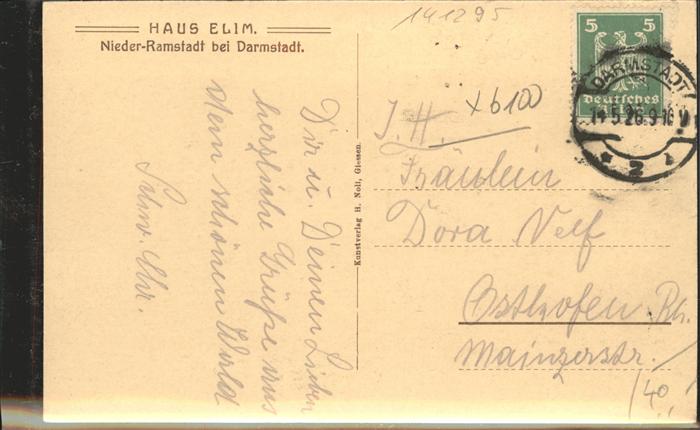 HAUS ELIM.
Nieder-Ramstadt bei Darmstadt.
141295
5 5
Deutsches
DARMSTADT
14.5.26.9-10 V
* 2 1
xb100
Dir u. Deinen Lieben
herzliche Grüße aus
dem schönen Wald
Schw. Chr.
Kunstverlag H. Noll, Giessen.
J. H.
Fräulein
Dora Velf
Osthofen Rh.
Mainzerstr.
(40,,